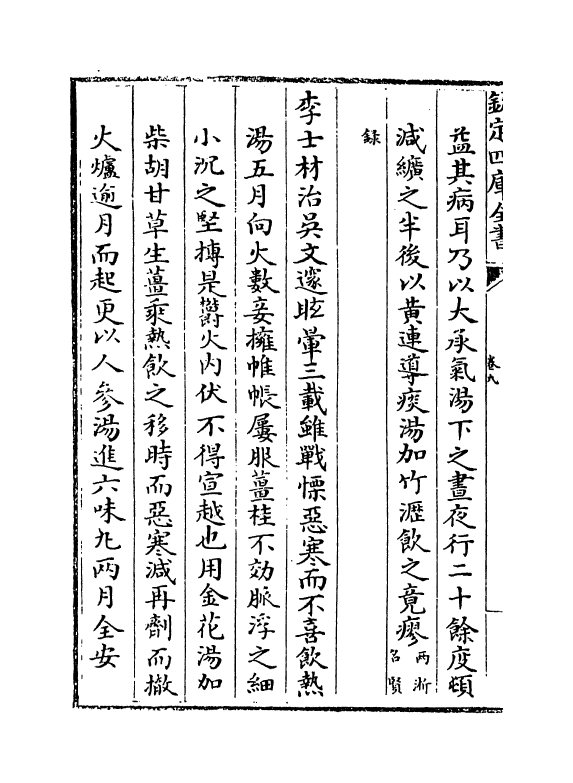 欽定四庫全書
卷九
益其病耳乃以大承氣湯下之晝夜行二十餘度頓
減纊之半後以黃連導痰湯加竹瀝飲之竟瘳兩浙名賢
録
李士材治吳文邃眩暈三載雖戰慄惡寒而不喜飲熱
湯五月向火數妾擁帷帳屢服薑桂不効脈浮之細
小沉之堅搏是鬱火内伏不得宣越也用金花湯加
柴胡甘草生薑乘熱飲之移時而惡寒減再劑而撤
火爐逾月而起更以人參湯進六味丸兩月全安